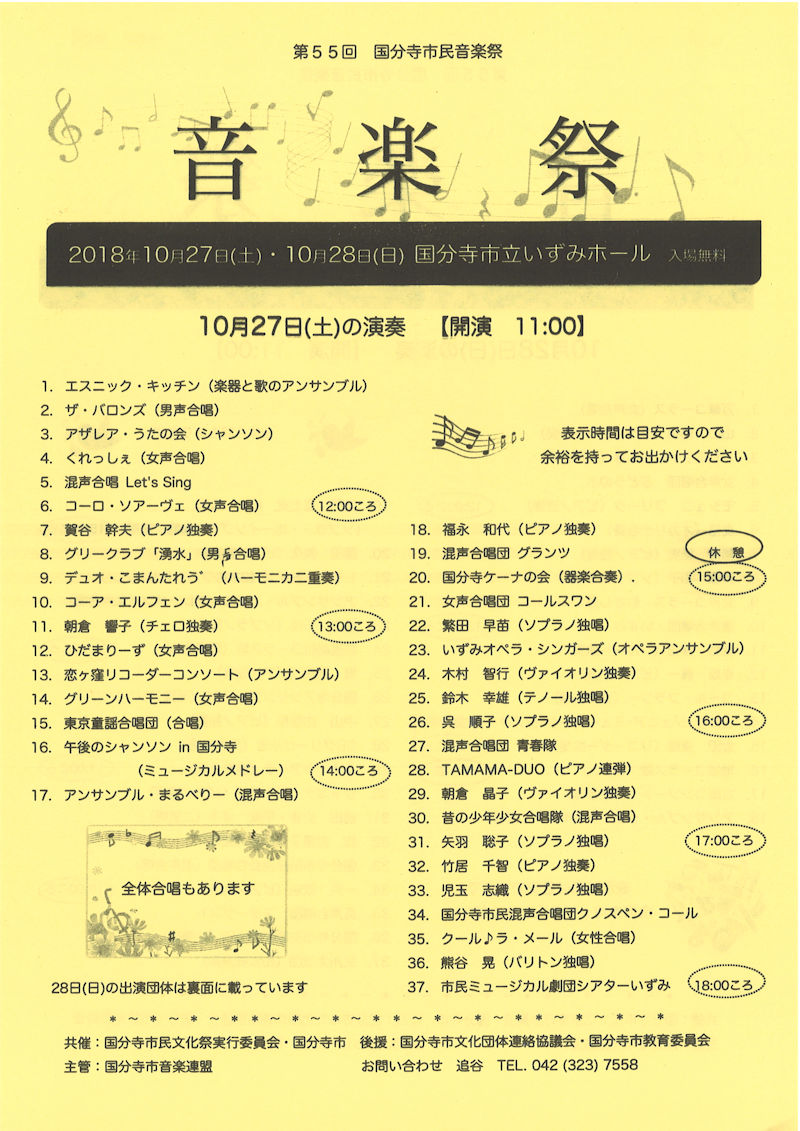 第５５回　国分寺市民音楽祭
音　楽　祭
2018年10月27日(土)・10月28日(日) 国分寺市立いずみホール　入場無料
10月27日(土)の演奏　【開演　11:00】
1. エスニック・キッチン（楽器と歌のアンサンブル）
2. ザ・バロンズ（男声合唱）
3. アザレア・うたの会（シャンソン）
4. くれっしぇ（女声合唱）
5. 混声合唱 Let's Sing
6. コーロ・ソアーヴェ（女声合唱）　12:00ころ
7. 賀谷　幹夫（ピアノ独奏）
8. グリークラブ「湧水」（男声合唱）
9. デュオ・こまんたれゔ（ハーモニカ二重奏）
10. コーア・エルフェン（女声合唱）
11. 朝倉　響子（チェロ独奏）　13:00ころ
12. ひだまりーず（女声合唱）
13. 恋ヶ窪リコーダーコンソート（アンサンブル）
14. グリーンハーモニー（女声合唱）
15. 東京童謡合唱団（合唱）
16. 午後のシャンソン in 国分寺
（ミュージカルメドレー）　14:00ころ
17. アンサンブル・まるべりー（混声合唱）
表示時間は目安ですので
余裕を持ってお出かけください
18. 福永　和代（ピアノ独奏）
19. 混声合唱団 グランツ　休　憩
20. 国分寺ケーナの会（器楽合奏）.　15:00ころ
21. 女声合唱団 コールスワン
22. 繁田　早苗（ソプラノ独唱）
23. いずみオペラ・シンガーズ（オペラアンサンブル）
24. 木村　智行（ヴァイオリン独奏）
25. 鈴木　幸雄（テノール独唱）
26. 呉　順子（ソプラノ独唱）　16:00ころ
27. 混声合唱団 青春隊
28. TAMAMA-DUO（ピアノ連弾）
29. 朝倉　晶子（ヴァイオリン独奏）
30. 昔の少年少女合唱隊（混声合唱）
31. 矢羽　聡子（ソプラノ独唱）　17:00ころ
32. 竹居　千智（ピアノ独奏）
33. 児玉　志織（ソプラノ独唱）
34. 国分寺市民混声合唱団クノスペン・コール
35. クール♪ラ・メール（女性合唱）
36. 熊谷　晃（バリトン独唱）
37. 市民ミュージカル劇団シアターいずみ　18:00ころ
全体合唱もあります
28日(日)の出演団体は裏面に載っています
＊～＊～＊～＊～＊～＊～＊～＊～＊～＊～＊～＊～＊～＊
共催：国分寺市民文化祭実行委員会・国分寺市　後援：国分寺市文化団体連絡協議会・国分寺市教育委員会
主管：国分寺市音楽連盟　お問い合わせ　追谷　TEL. 042 (323) 7558